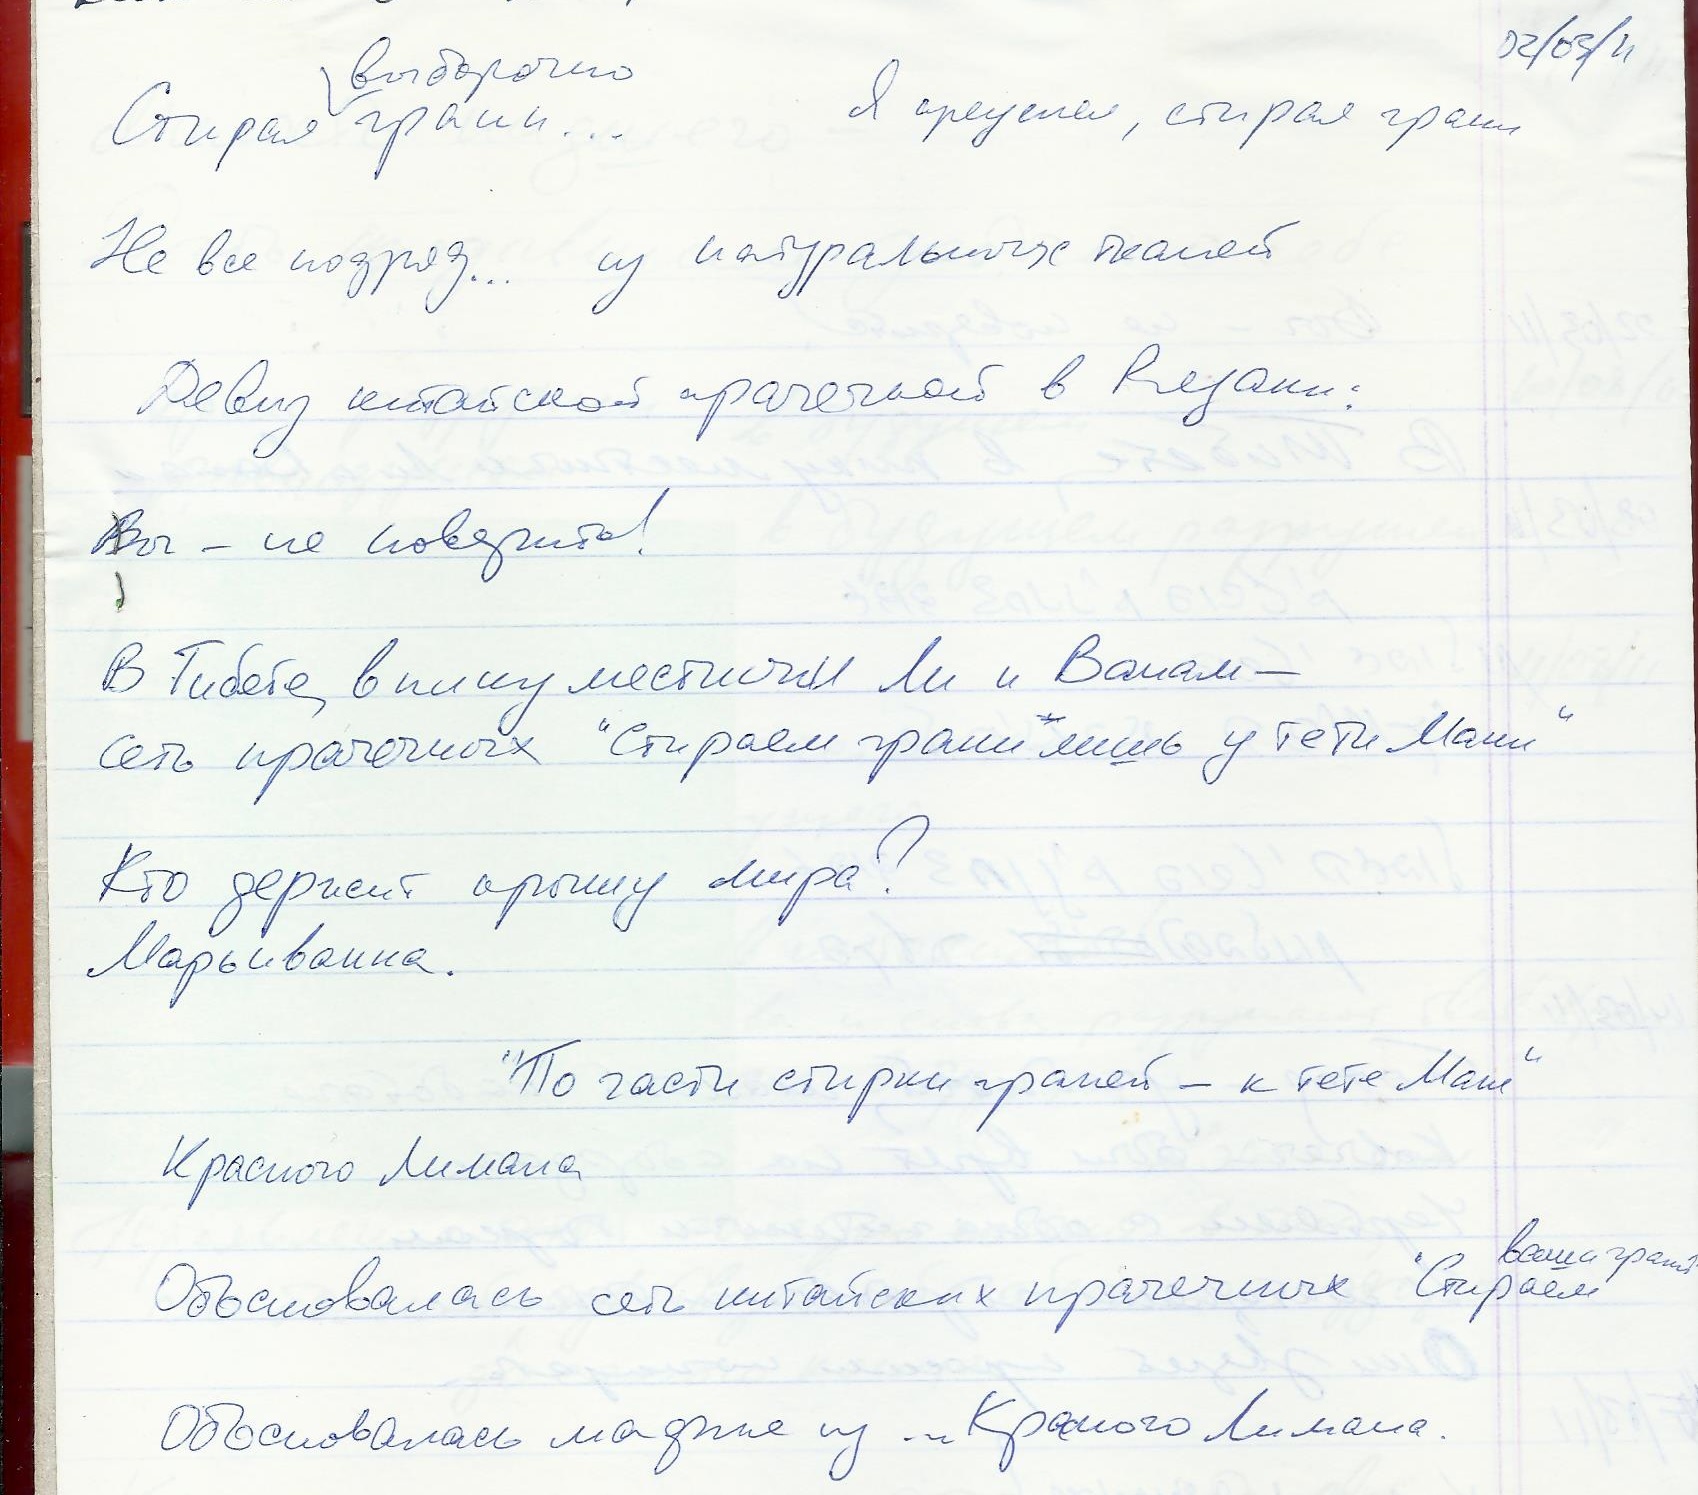 02/03/11
выборочно
Стирая грани... Я преуспел, стирая грани
Не все подряд... из натуральных тканей
Девиз китайской прачечной в Рязани:
Вы - не поверите!
В Тибете, в пику местным Ли и Ванам -
сеть прачечных "Стираем грани" лишь у тети Мани"
Кто держит крышу мира?
Марьиванна.
"По части стирки граней - к тете Мане"
Красного Лимана
ваши грани"
Обосновалась сеть китайских прачечных "Стираем
Обосновалась мафия из ... Красного Лимана.